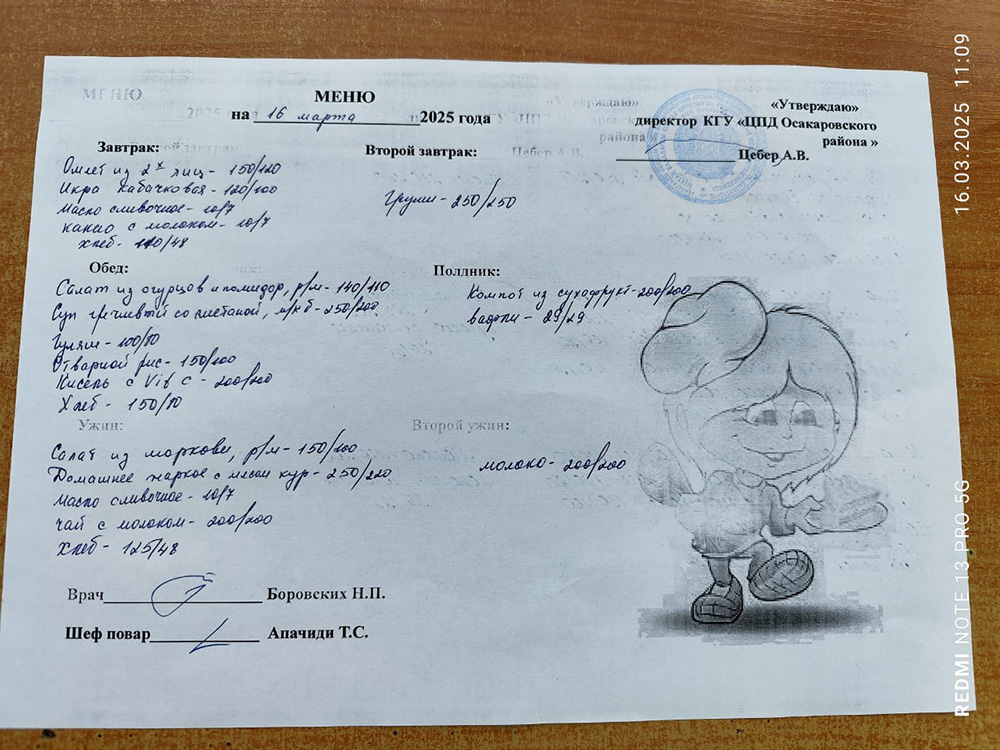 МЕНЮ
на 16 марта 2025 года
«Утверждаю»
директор КГУ «ЦПД Осакаровского
района »
Цебер А.В.
Завтрак:
Омлет из 2х яиц - 150/120
Икра кабачковая - 120/100
Масло сливочное - 10/7
какао с молоком - 10/7
хлеб - 110/48
Второй завтрак:
Груши - 250/250
Обед:
Салат из огурцов и помидор, р/м - 140/110
Суп гречневый со сметаной, м/кб - 250/200
Гуляш - 100/80
Отварной рис - 150/100
Кисель с Vit C - 200/200
Хлеб - 150/80
Полдник:
Компот из сухофрукт - 200/200
вафли - 29/29
Ужин:
Салат из моркови, р/м - 150/100
Домашнее жаркое с мясом кур - 250/220
Масло сливочное - 10/7
чай с молоком - 200/200
хлеб - 125/48
Второй ужин:
молоко - 200/200
Врач Боровских Н.П.
Шеф повар Апачиди Т.С.
16.03.2025 11:09
REDMI NOTE 13 PRO 5G